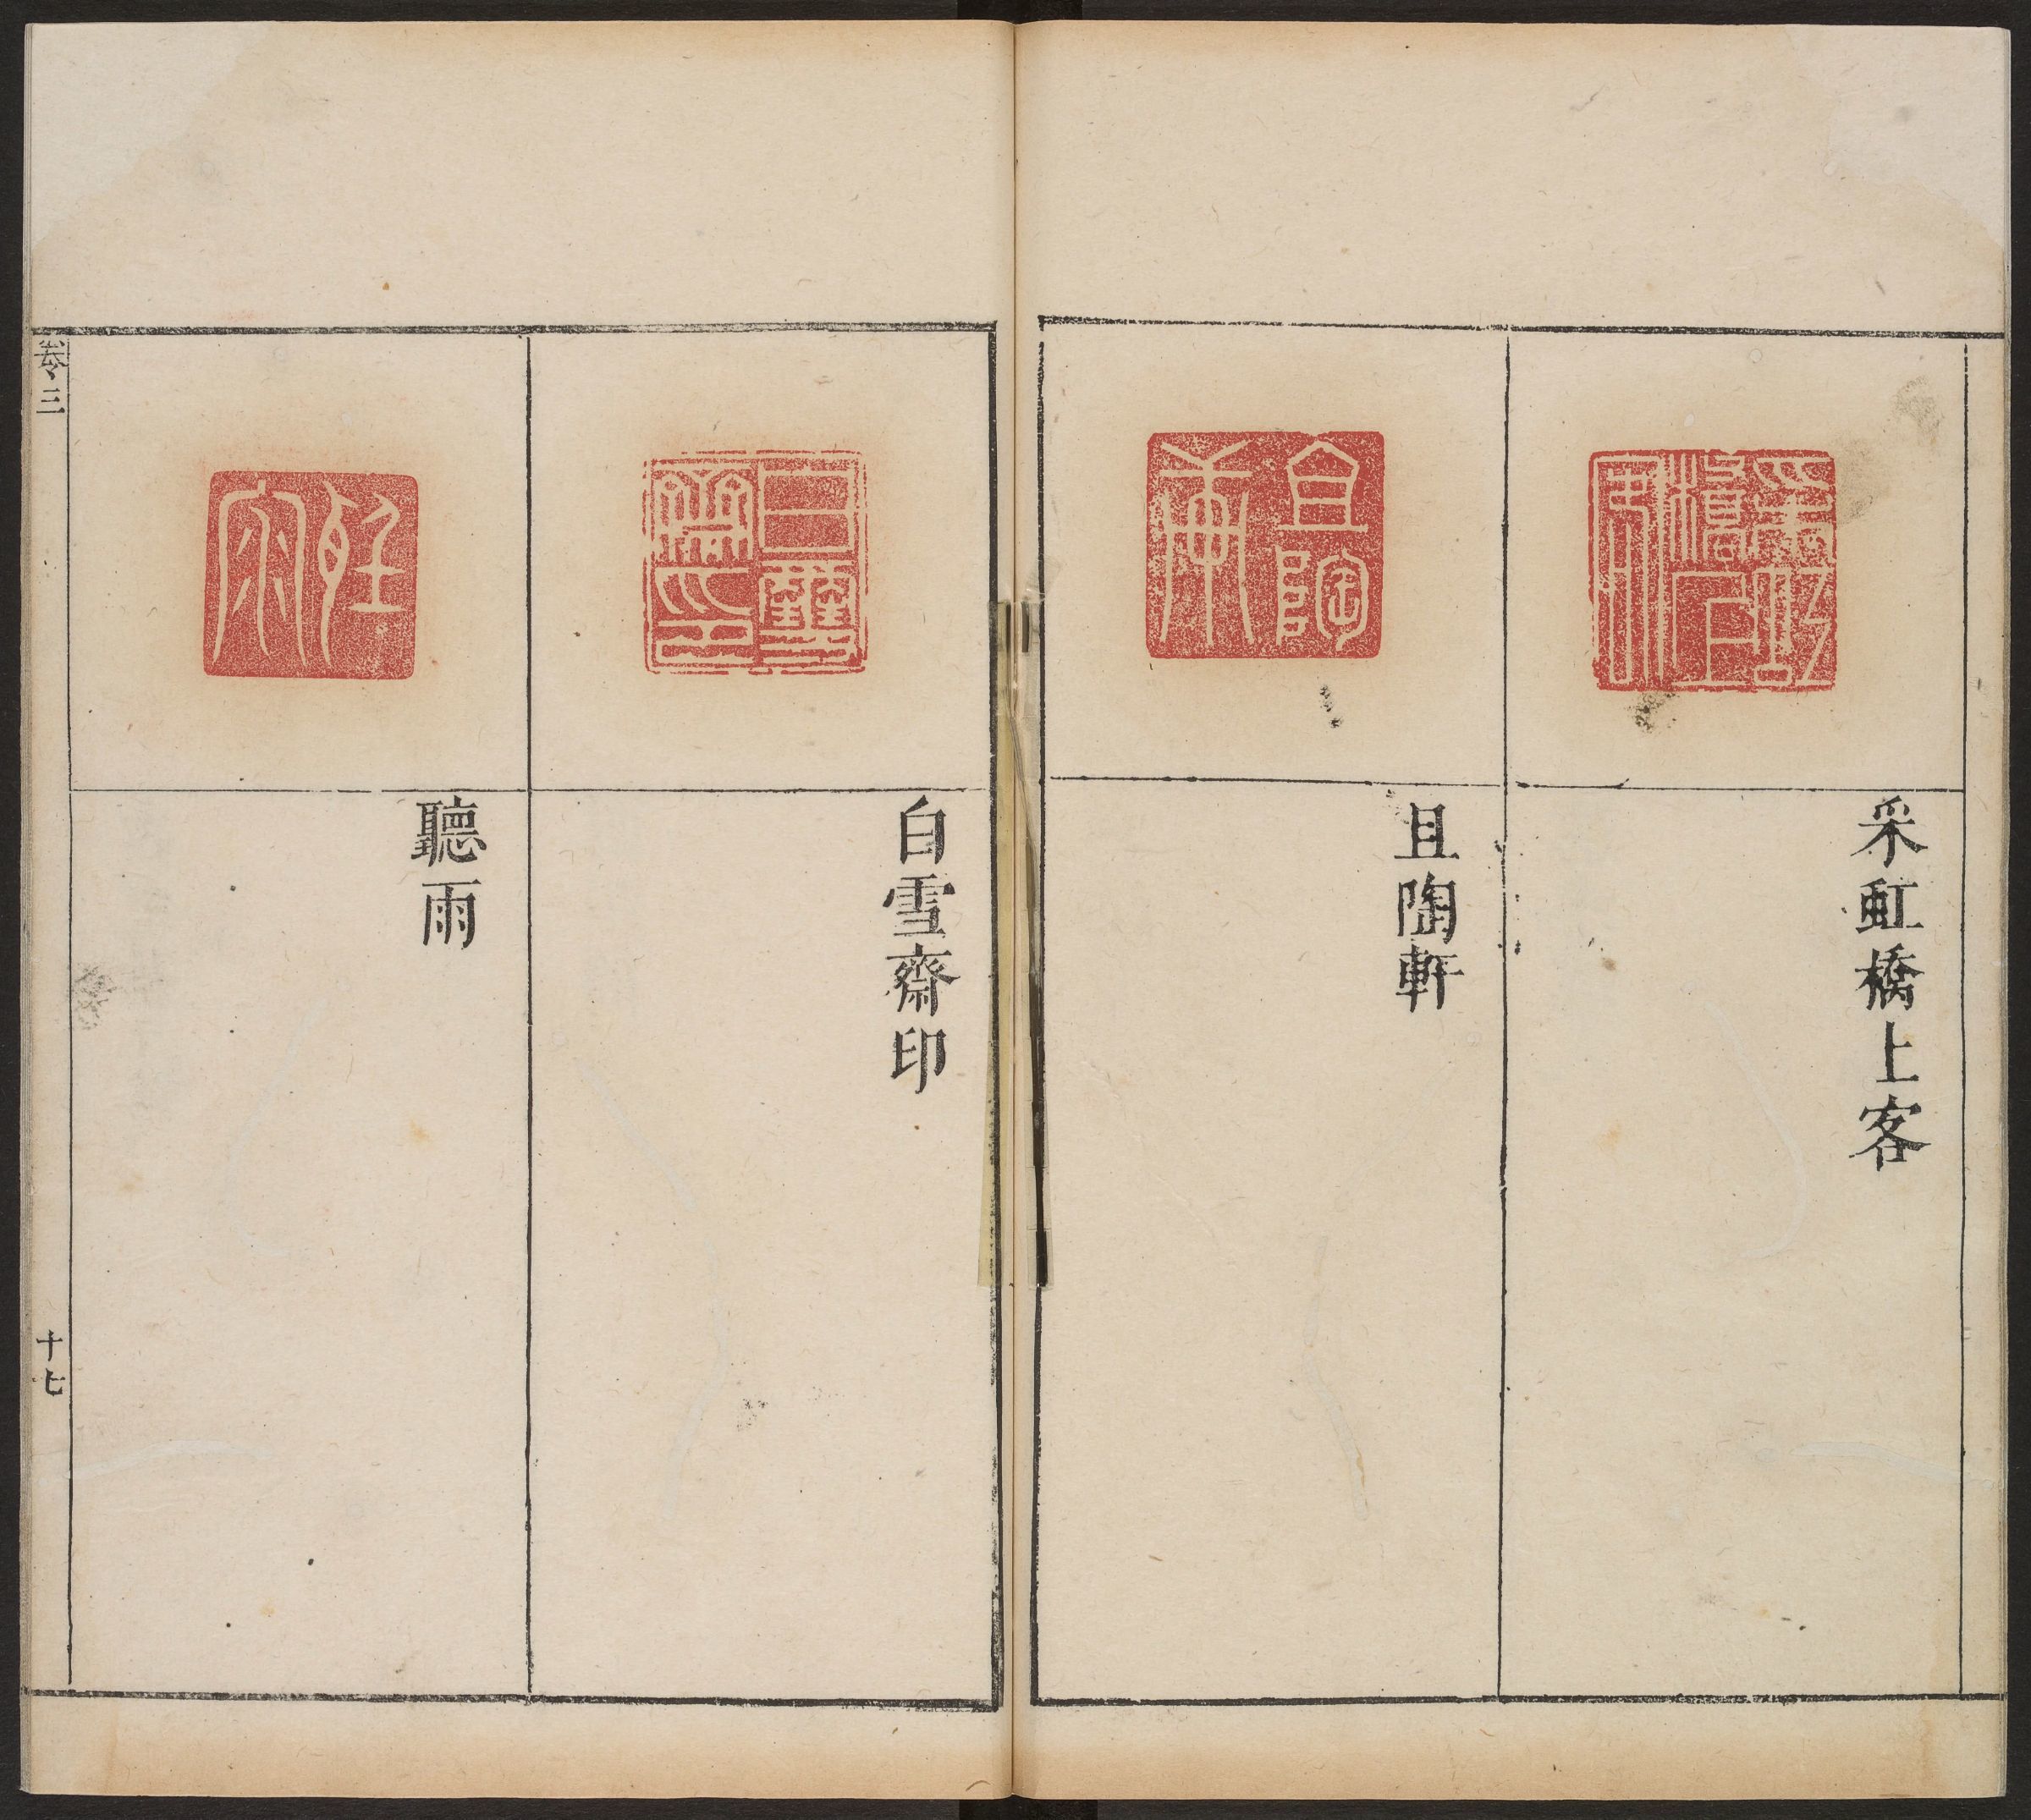 采虹橋上客
且陶軒
白雪齋印
聽雨
卷三
十七